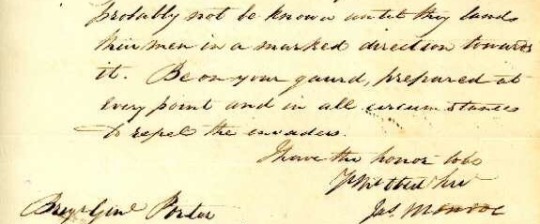 probably not be known until they lands
their men in a marked direction towards
it. Be on your gaurd, prepared at
every point and in all circumstances
to repel the invaders.
I have the honor to be
Jas Monroe
Brigr Genl Porter